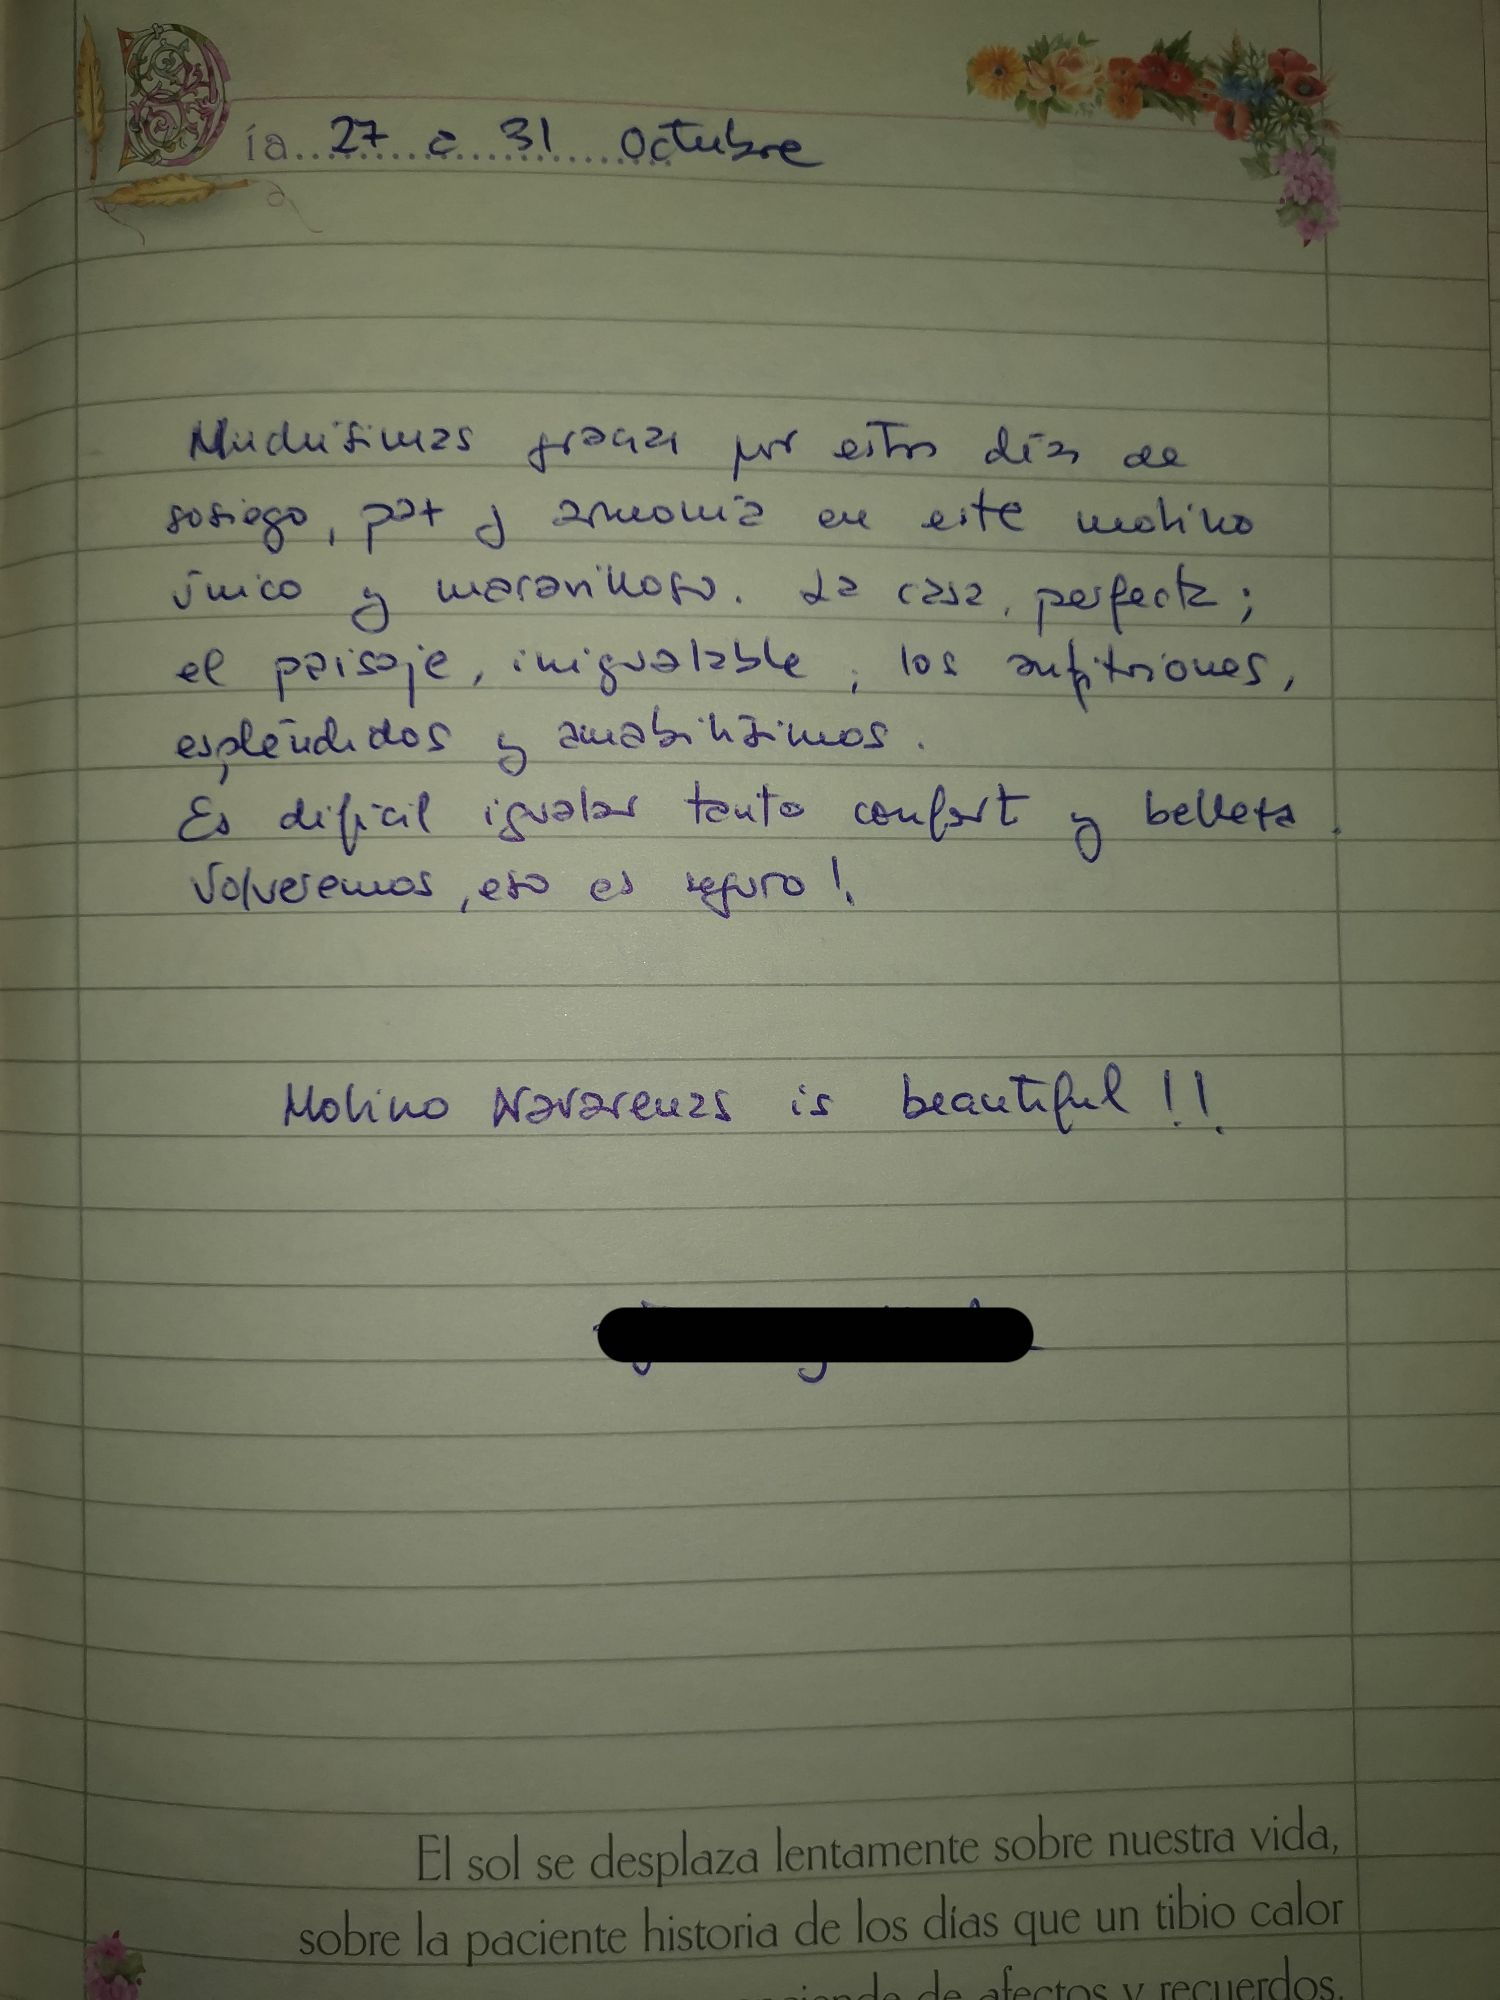 Día 27 a 31 octubre
Muchísimas gracias por estos días de
sosiego, paz y armonía en este molino
único y maravilloso. La casa, perfecta;
el paisaje, inigualable; los anfitriones,
espléndidos y amabilísimos.
Es difícil igualar tanto confort y belleza.
Volveremos, eso es seguro!.
Molino Navarenas is beautiful!!
El sol se desplaza lentamente sobre nuestra vida,
sobre la paciente historia de los días que un tibio calor
de afectos y recuerdos.